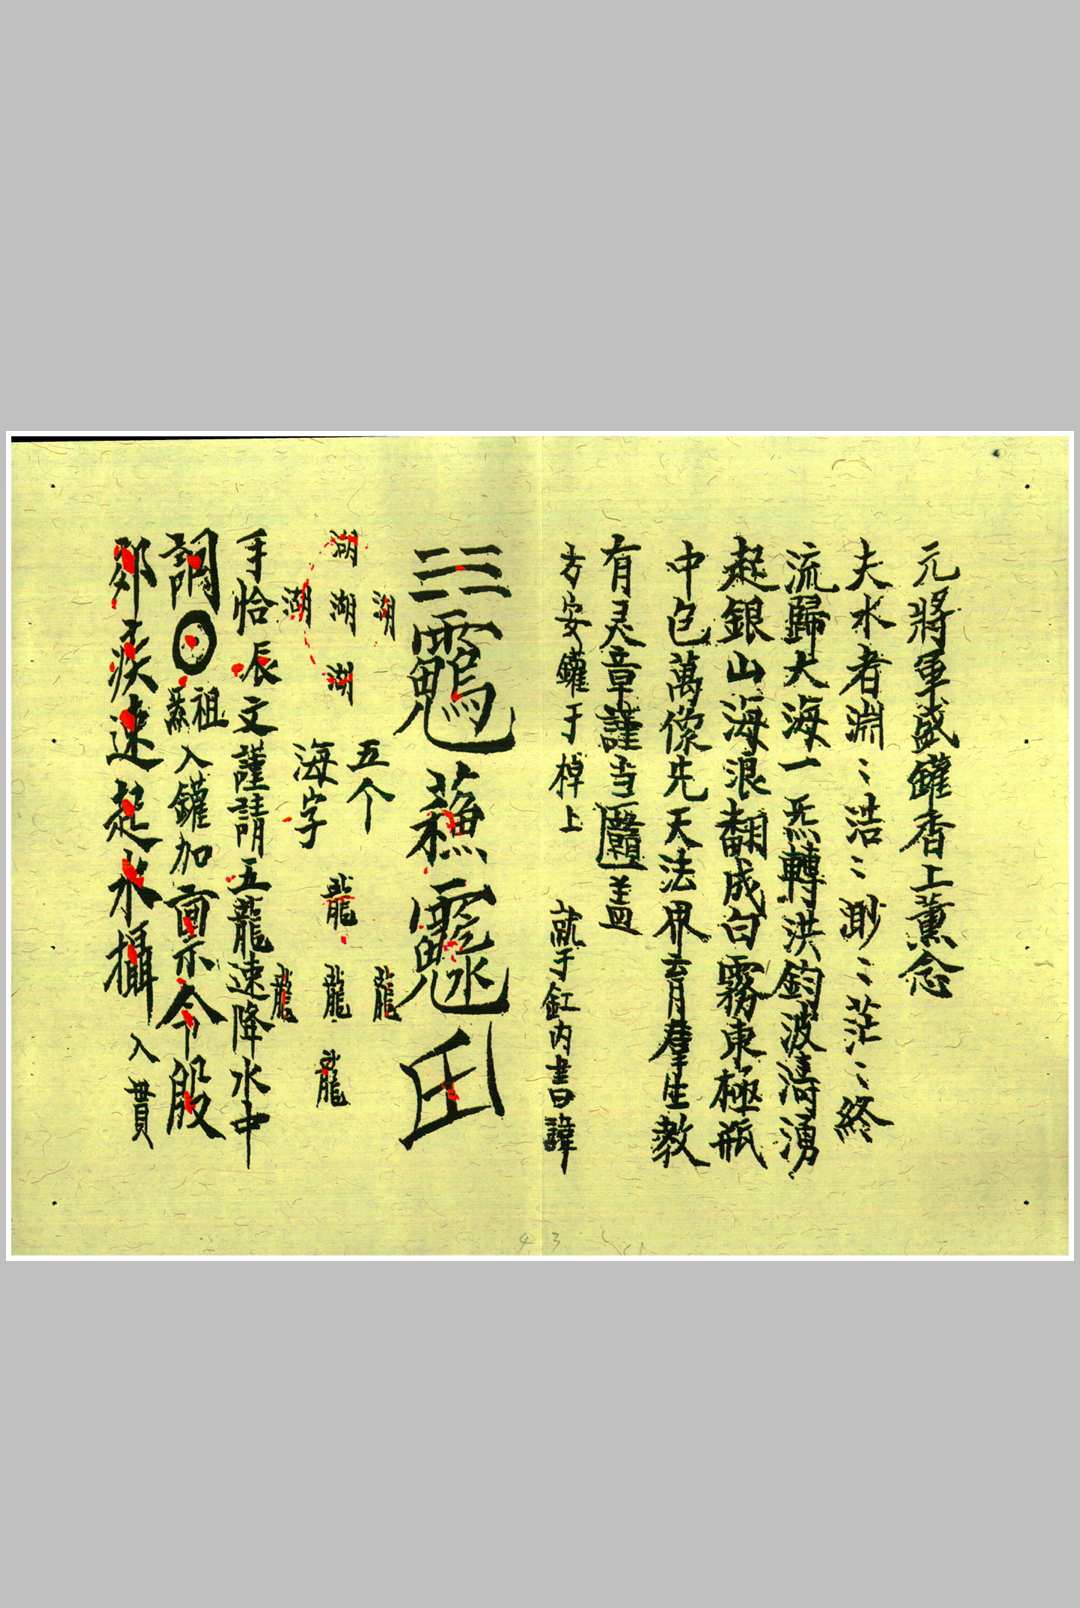 元將軍盛罐香上薰念
夫水者淵〻浩〻渺〻茫〻終
流歸大海一炁轉洪鈞波濤湧
起銀山海浪翻成白霧東極瓶
中包萬像先天法界育羣生教
有灵章謹当 盖
方安罐于棹上 就于缸内書諱
三
五个
海字
湖
湖 湖 湖
湖
龍
龍 龍 龍
龍
手恰辰文謹請五龍速降水中
祖入罐加
令
疾速起水攝 入
4 3